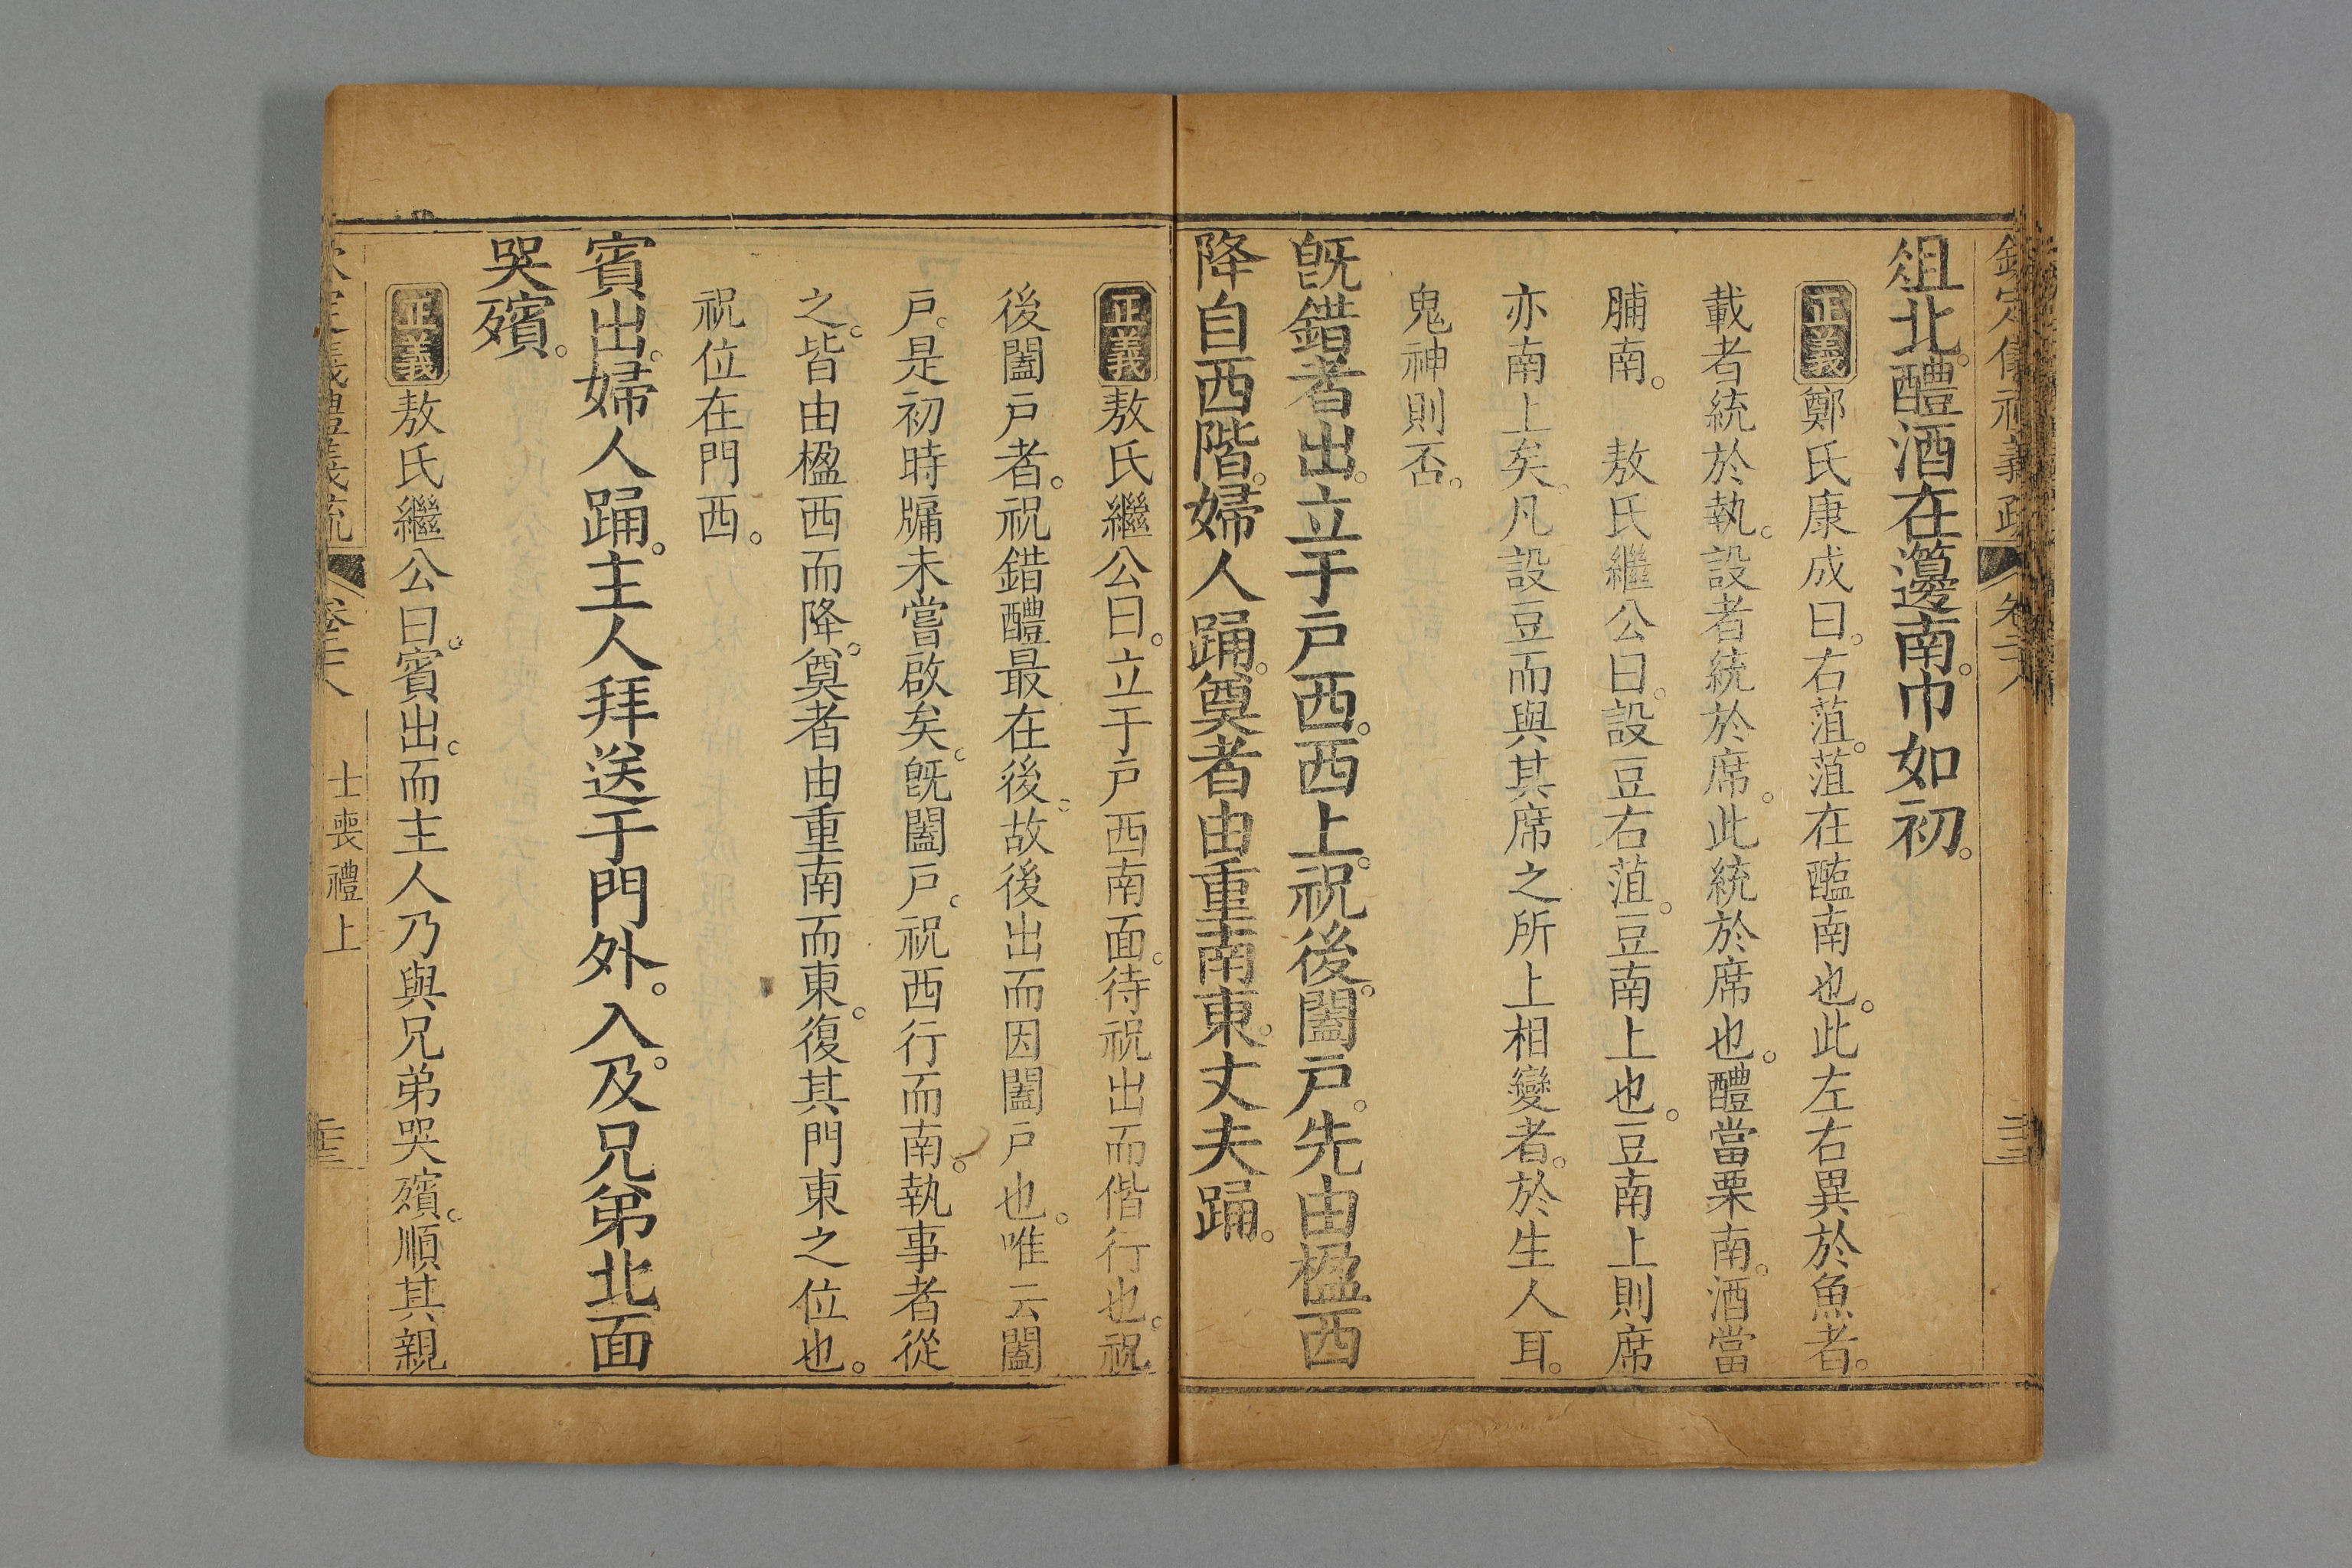 俎北。醴酒在籩南。巾如初。
正義鄭氏康成曰。右菹。菹在醢南也。此左右異於魚者。
載者統於執。設者統於席。此統於席也。醴當栗南。酒當
脯南。　敖氏繼公曰。設豆右菹。豆南上也。豆南上則席
亦南上矣。凡設豆而與其席之所上相變者。於生人耳。
鬼神則否。
既錯者出。立于戶西。西上。祝後。闔戶。先由楹西
降自西階。婦人踊。奠者由重南東。丈夫踊。
正義敖氏繼公曰。立于戶西南面。待祝出而偕行也。祝
後闔戶者。祝錯醴最在後。故後出而因闔戶也。唯云闔
戶。是初時牖未嘗啟矣。既闔戶。祝西行而南。執事者從
之。皆由楹西而降。奠者由重南而東。復其門東之位也。
祝位在門西。
賓出。婦人踊。主人拜送于門外。入。及兄弟北面
哭殯。
正義敖氏繼公曰。賓出。而主人乃與兄弟哭殯。順其親
欽定儀禮義疏　卷二十八　士喪禮上